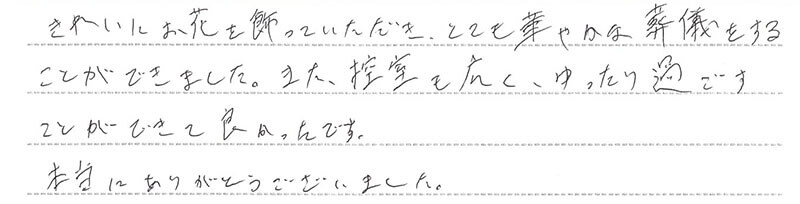 きれいにお花を飾っていただき、とても華やかな葬儀をする
ことができました。また、控室も広く、ゆったり過ごす
ことができて良かったです。
本当にありがとうございました。